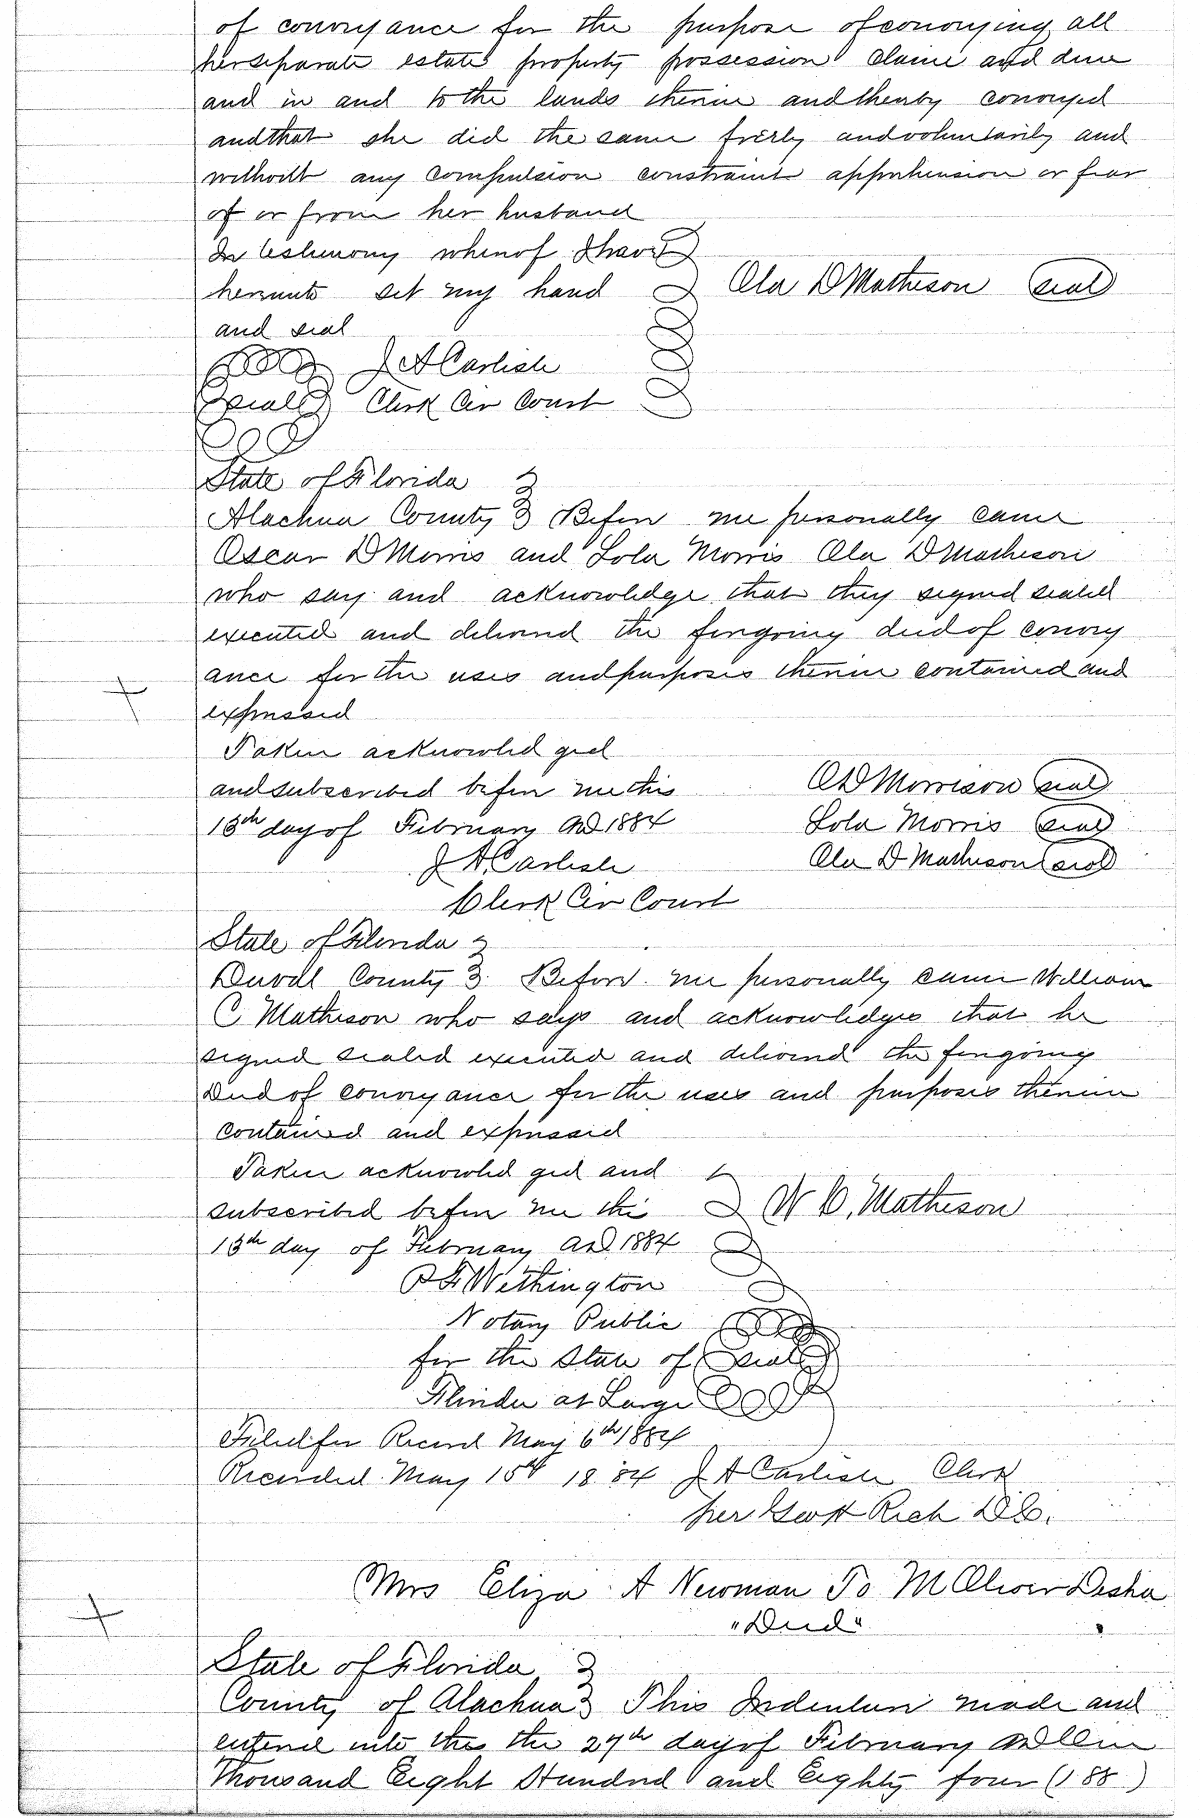 of conveyance for the purpose of conveying all
her separate estate property possession claim and
and in and to the lands therein and thereby conveyed
and that she did the same freely and voluntarily and
without any compulsion constraint apprehension or fear
of or from her husband
In testimony whereof I have
hereunto set my hand Ola D Matheson seal
and seal
J A Carlisle
seal Clerk Cir Court
State of Florida
Alachua County Before me personally came
Oscar D Morris and Lola Morris Ola D Matheson
who say and acknowledge that they signed sealed
executed and delivered the foregoing deed of convey
ance for the uses and purposes therein contained and
expressed
Taken acknowledged
and subscribed before me this O D Morrison seal
13th day of February AD 1884 Lola Morris seal
J A Carlisle Ola D Matheson seal
Clerk Cir Court
State of Florida
Duval County Before me personally came William
C Matheson who says and acknowledges that he
signed sealed executed and delivered the foregoing
Deed of conveyance for the uses and purposes therein
contained and expressed
Taken acknowledged and
subscribed before me this W C. Matheson
13th day of February AD 1884
Wethington
Notary Public
for the State of seal
Florida at Large
Filed for Record May 6th 1884
Recorded May 15th 1884 J A Carlisle Clerk
per Geo H Rich D.C.
Mrs Eliza A Newman To M Oliver Desha
"Deed"
State of Florida
County of Alachua This Indenture made and
entered into this the 27th day of February AD One
Thousand Eight Hundred and Eighty four (188 )